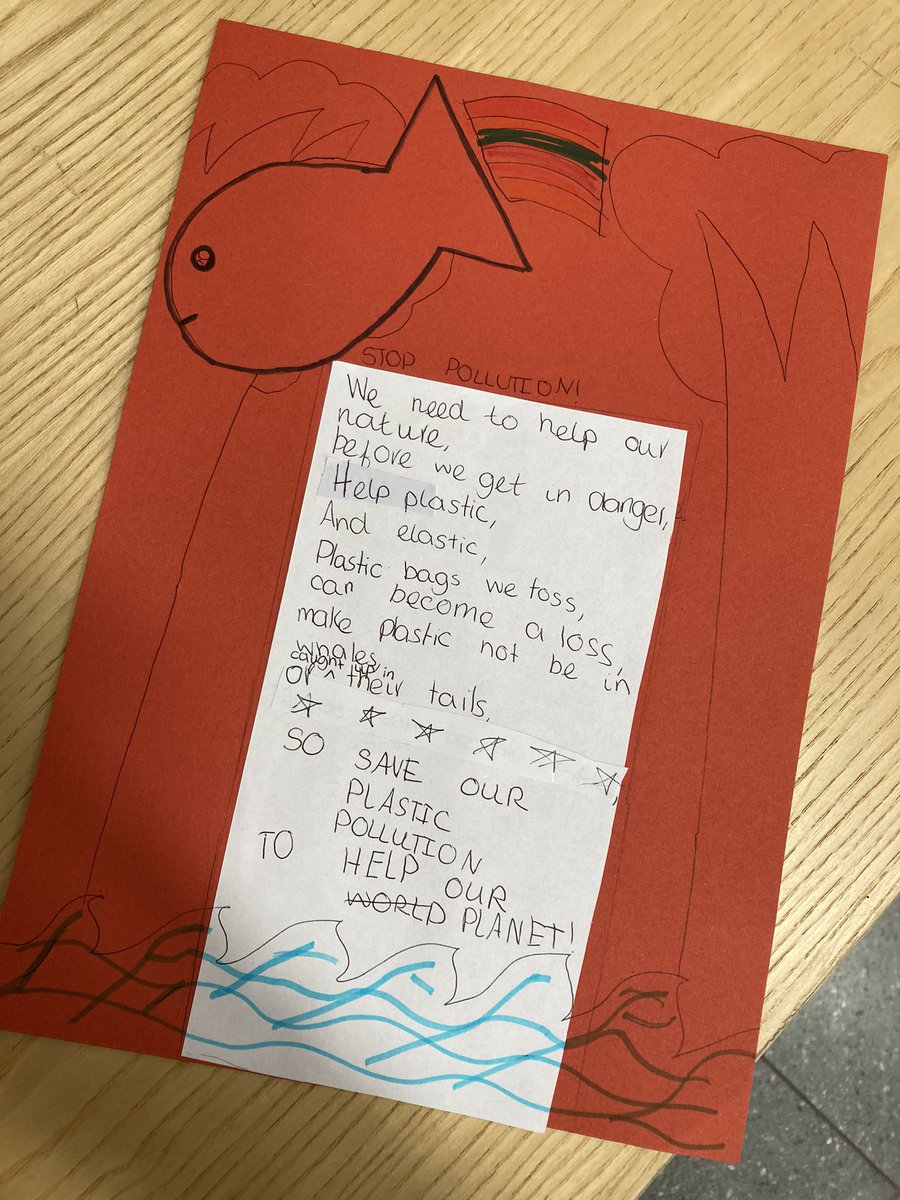 STOP POLLUTION!
We need to help our
nature,
before we get in danger,
Help plastic,
And elastic,
Plastic bags we toss,
can become a loss,
make plastic not be in
whales
caught up in
Or ^ their tails,
SO SAVE OUR
PLASTIC
POLLUTION
TO HELP OUR
WORLD PLANET!